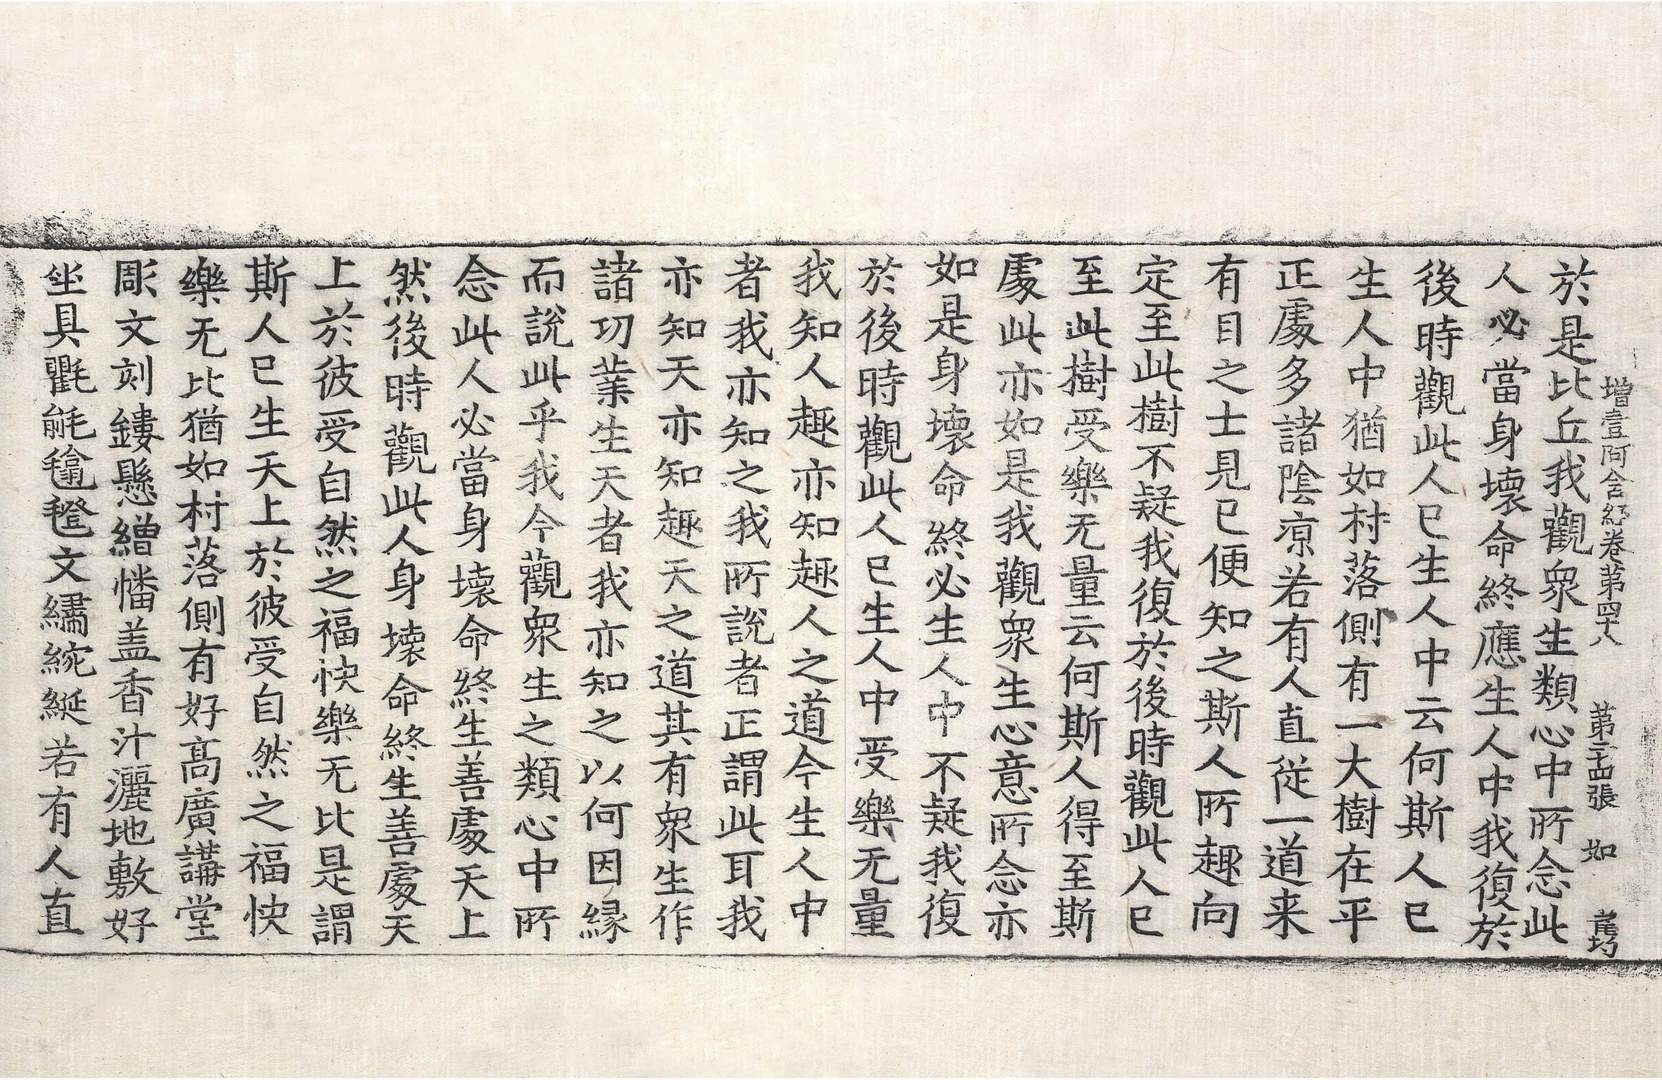 增壹阿含經卷第四十八 第二十四張 如
於是比丘我觀衆生類心中所念此
人必當身壞命終應生人中我復於
後時觀此人已生人中云何斯人已
生人中猶如村落側有一大樹在平
正處多諸陰涼若有人直從一道来
有目之士見已便知之斯人所趣向
定至此樹不疑我復於後時觀此人已
至此樹受樂无量云何斯人得至斯
處此亦如是我觀衆生心意所念亦
如是身壞命終必生人中不疑我復
於後時觀此人已生人中受樂无量
我知人趣亦知趣人之道今生人中
者我亦知之我所說者正謂此耳我
亦知天亦知趣天之道其有衆生作
諸功業生天者我亦知之以何因緣
而說此乎我今觀衆生之類心中所
念此人必當身壞命終生善處天上
然後時觀此人身壞命終生善處天
上於彼受自然之福快樂无比是謂
斯人已生天上於彼受自然之福快
樂无比猶如村落側有好高廣講堂
彫文刻鏤懸繒幡盖香汁灑地敷好
坐具氍毹毾㲪文繡綩綖若有人直